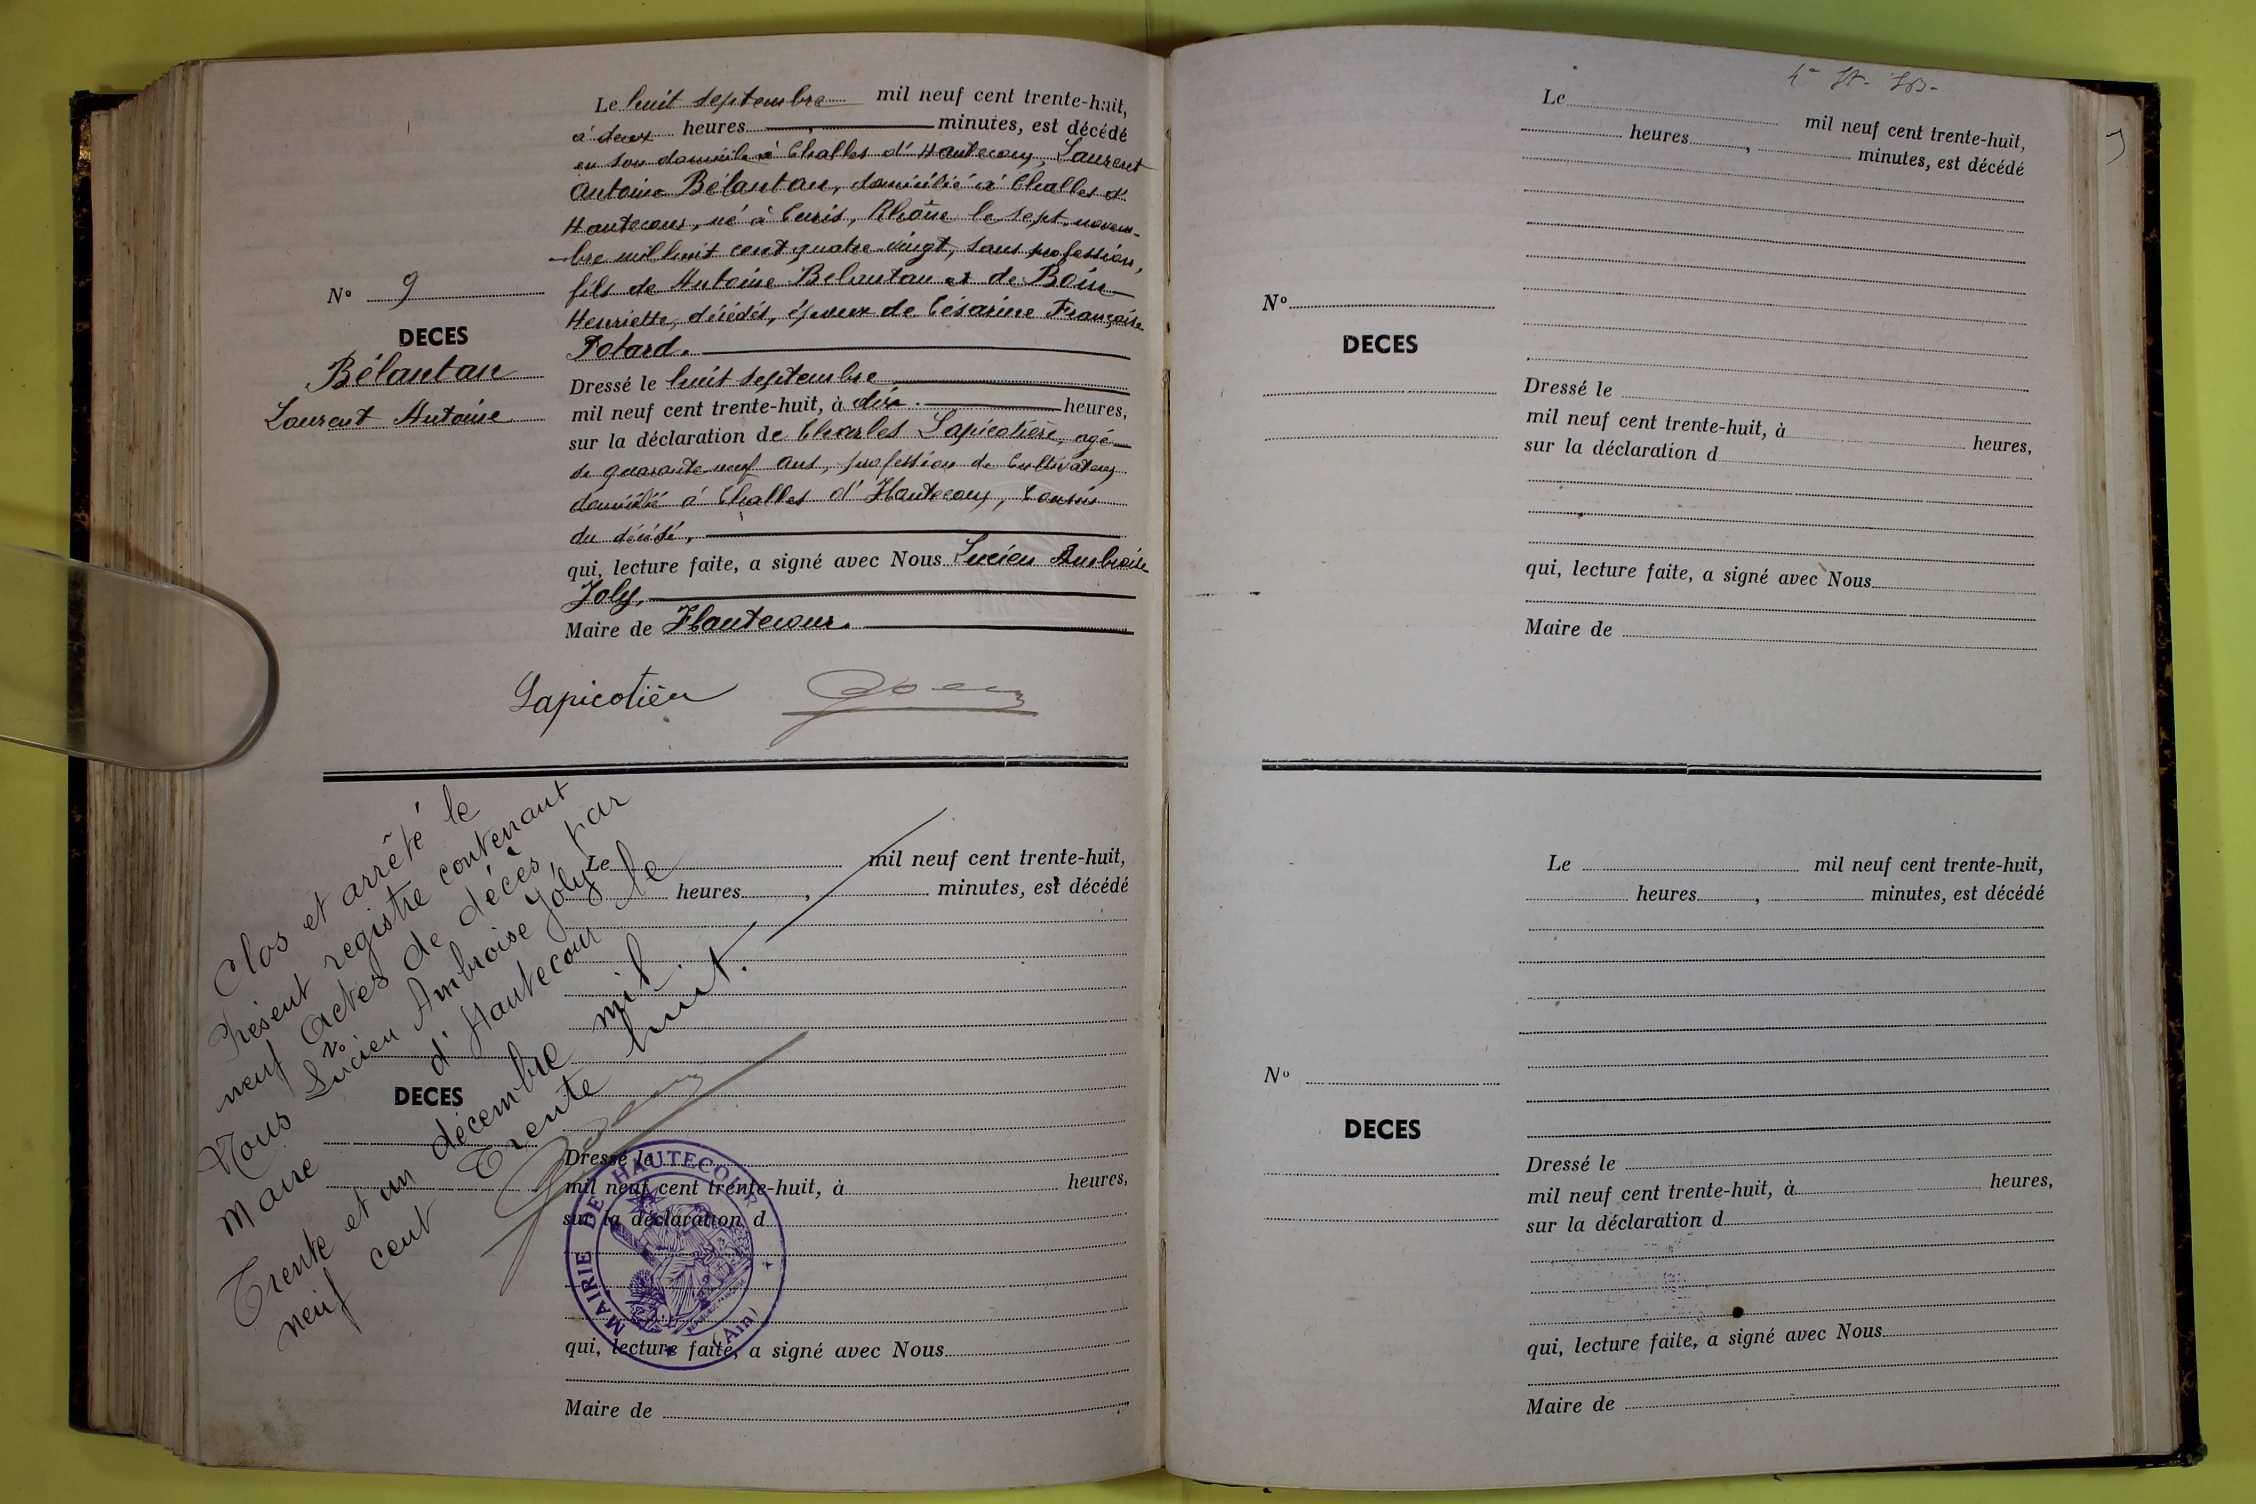 Le huit septembre mil neuf cent trente-huit,
à deux heures , minutes, est décédé
en son domicile à Challes d'Hautecour, Laurent
Antoine Bélantan, domicilié à Challes d'
Hautecour, né à Curis, Rhône le sept novem-
-bre mil huit cent quatre-vingt, sans profession,
fils de Antoine Belantan et de Boin
Henriette, décédés, époux de Césarine Françoise
Polard.
N° 9
DECES
Bélantan
Laurent Antoine
Dressé le huit septembre
mil neuf cent trente-huit, à dix heures,
sur la déclaration de Charles Lapicotière, agé
de quarante-neuf ans, profession de Cultivateur
domicilié à Challes d'Hautecour, Cousin
du décédé,
qui, lecture faite, a signé avec Nous Lucien Ambroise
Joly,
Maire de Hautecour.
Lapicotièr
Clos et arrêté le
Présent registre contenant
neuf actes de décès par
Nous Lucien Ambroise Joly
Maire d'Hautecour le
Trente et un décembre mil
neuf cent Trente huit.
Le mil neuf cent trente-huit,
heures , minutes, est décédé
N°
DECES
Dressé le
mil neuf cent trente-huit, à heures,
sur la déclaration d
qui, lecture faite, a signé avec Nous
Maire de
MAIRIE DE HAUTECOUR
(Ain)
Le mil neuf cent trente-huit,
heures , minutes, est décédé
N°
DECES
Dressé le
mil neuf cent trente-huit, à heures,
sur la déclaration d
qui, lecture faite, a signé avec Nous
Maire de
Le mil neuf cent trente-huit,
heures , minutes, est décédé
N°
DECES
Dressé le
mil neuf cent trente-huit, à heures,
sur la déclaration d
qui, lecture faite, a signé avec Nous
Maire de